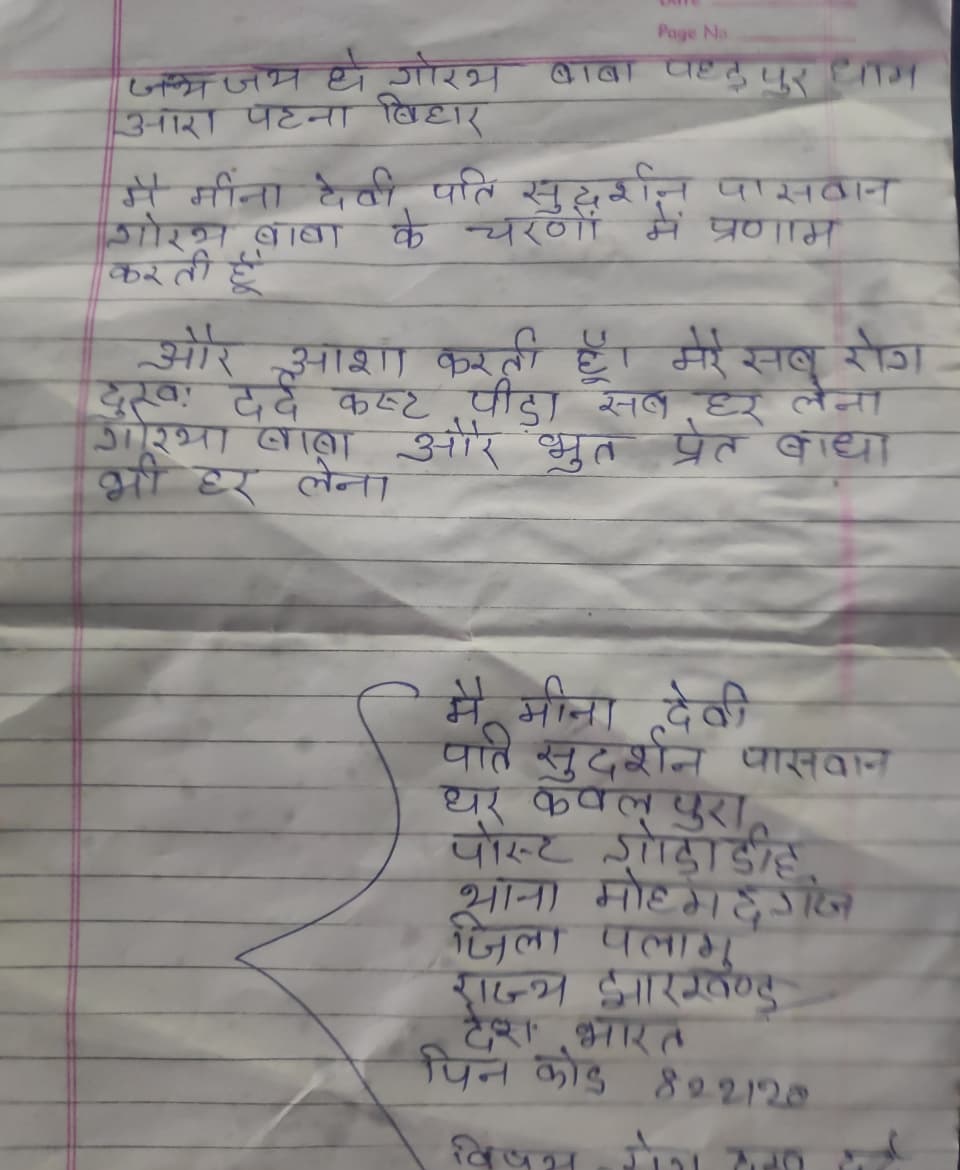 Page No
जय जय हो गोरभ बाबा पहड़पुर धाम
आरा पटना बिहार
मै मींना देवी पति सुदर्शन पासवान
गोरभ बाबा के चरणों में प्रणाम
करती हूँ
और आशा करती हूँ। मेरे सब रोग
दुखः दर्द कस्ट पीड़ा सब हर लेना
गोरभा बाबा और भुत प्रेत बाधा
भी हर लेना
मै मीना देवी
पति सुदर्शन पासवान
घर कबलपुरा
पोस्ट गोड़ाडीह
थाना मोहमदगंज
जिला पलामू
राज्य झारखण्ड
देश भारत
पिन कोड 822120
विषय रोग